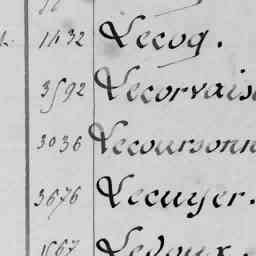 1432 Lecoq.
3592 Lecorvais
3036 Lecoursonn
3676 Lecuyer.
1667 Ledoux.